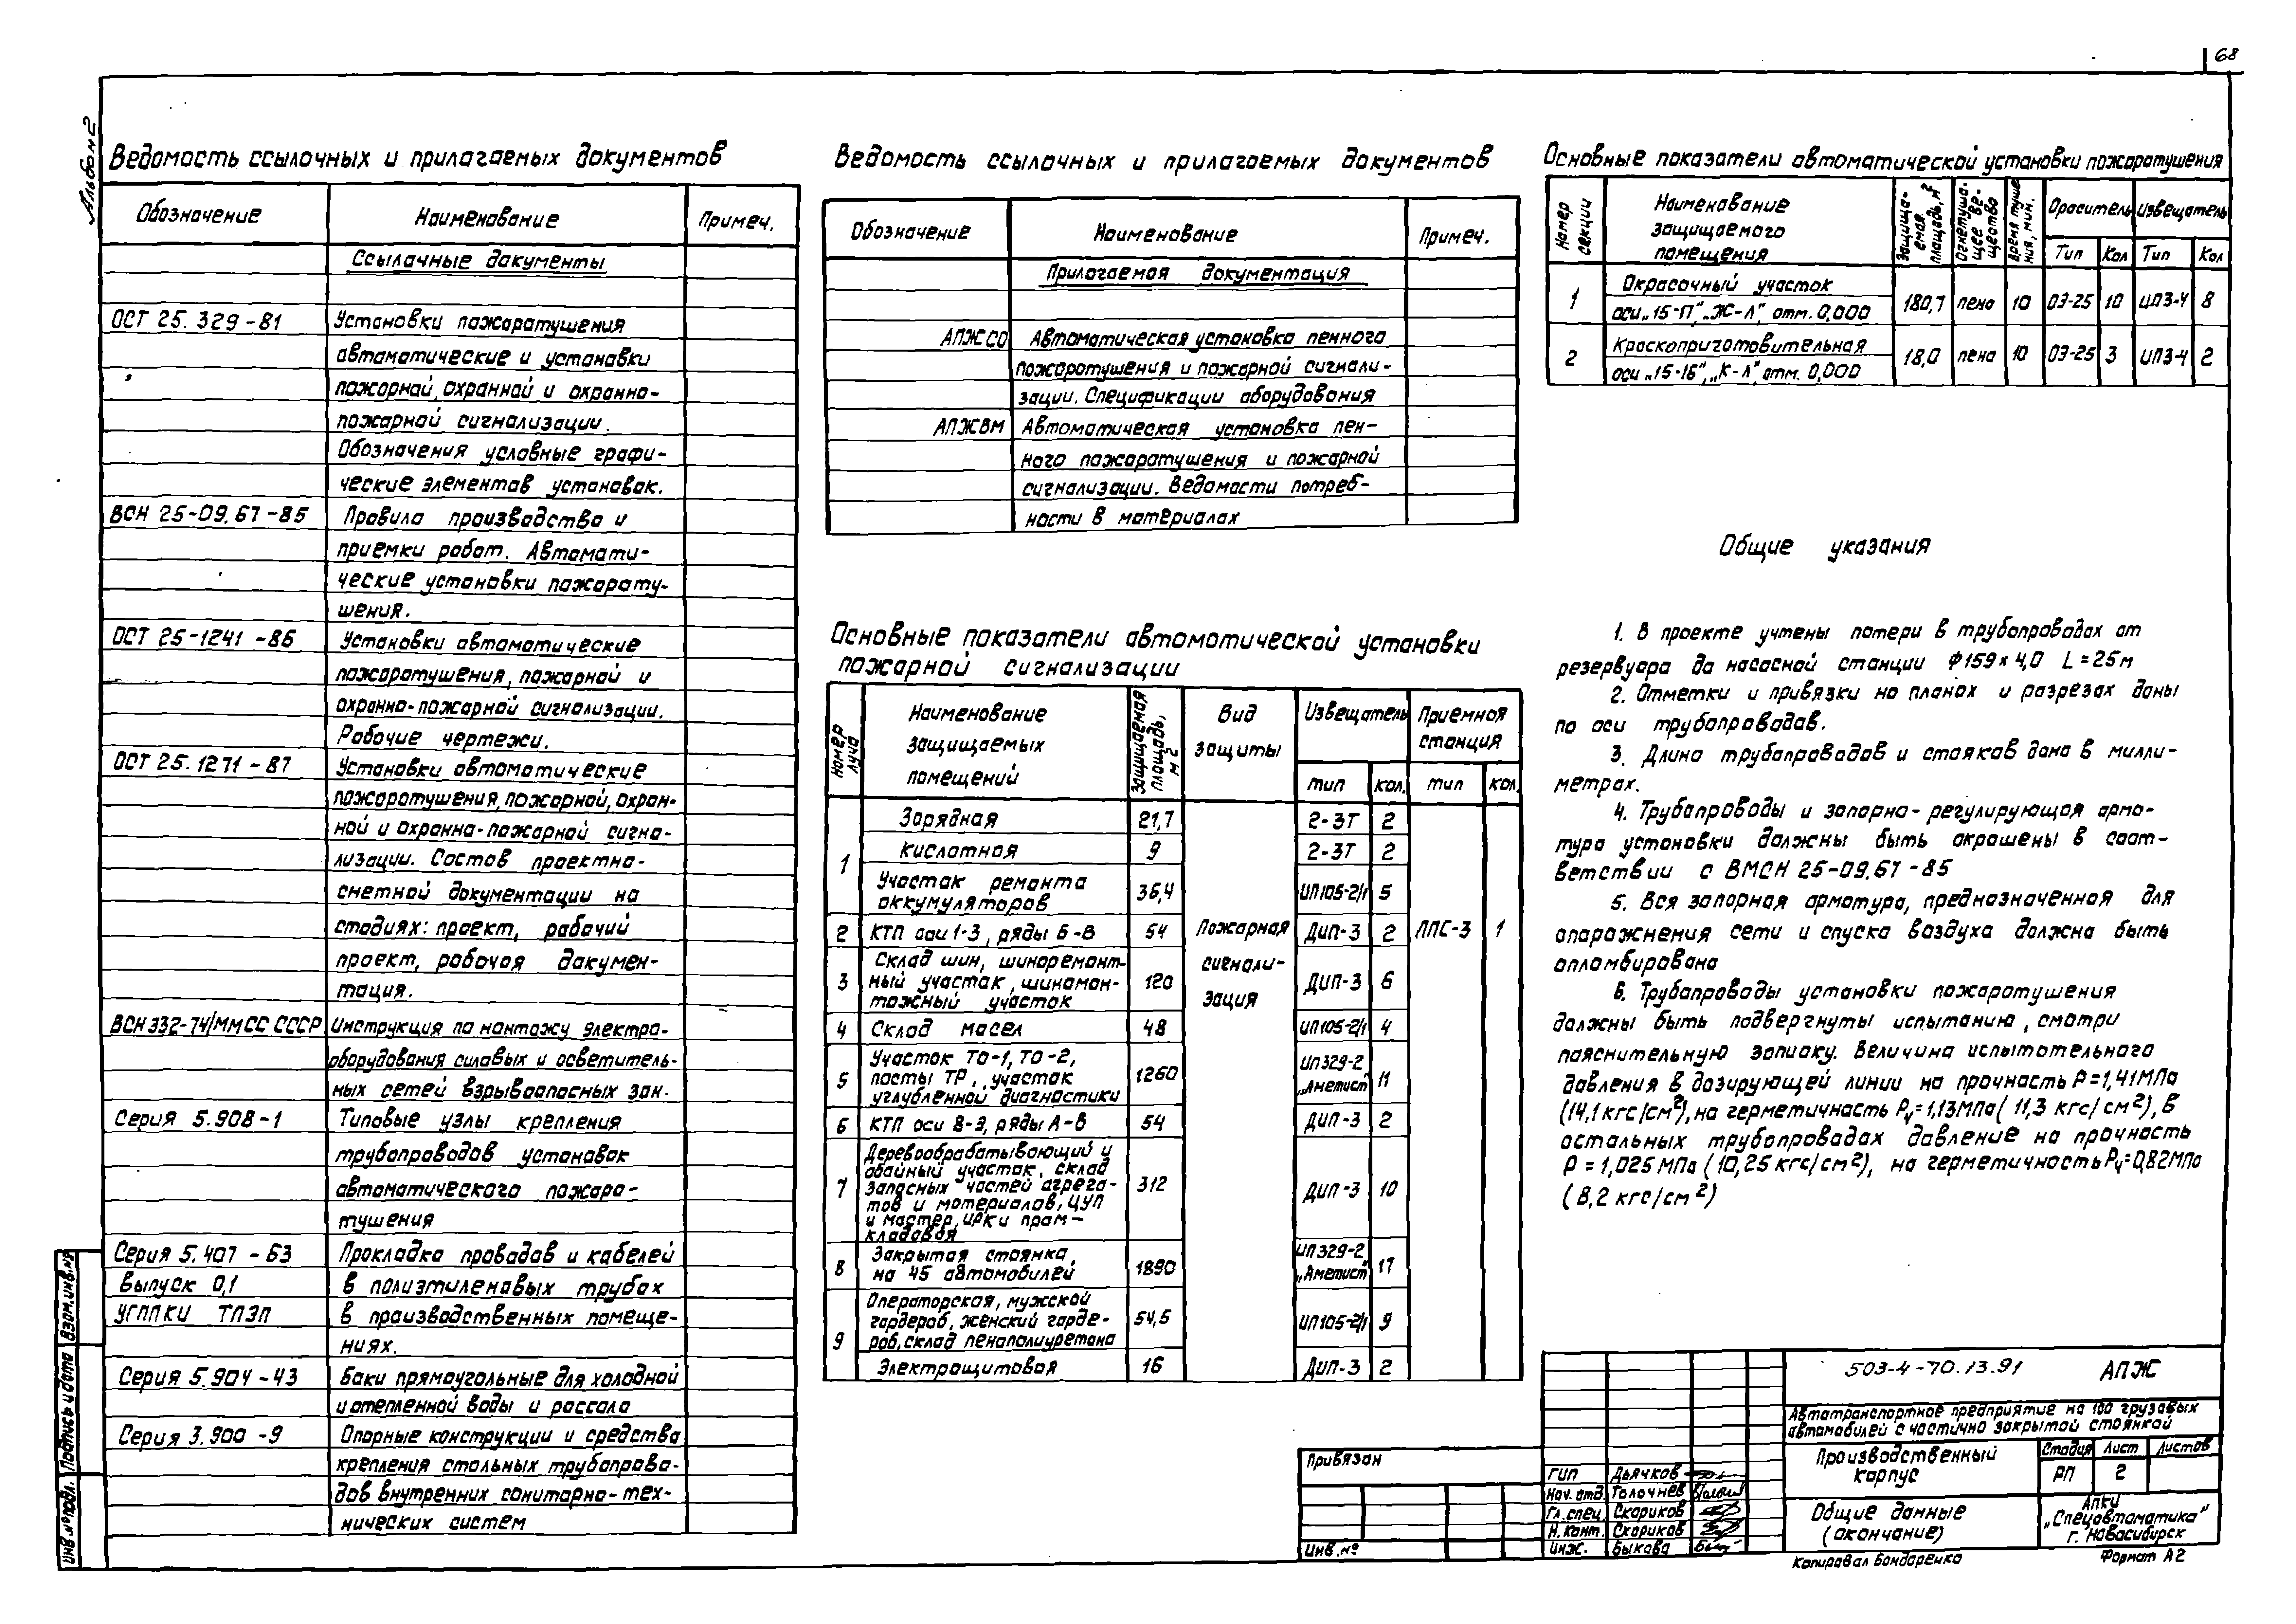 68
Альбом 2
Ведомость ссылочных и прилагаемых документов
Обозначение Наименование Примеч.
Ссылочные документы
ОСТ 25.329-81 Установки пожаротушения
автоматические и установки
пожарной, охранной и охранно-
пожарной сигнализации.
Обозначения условные графи-
ческие элементов установок.
ВСН 25-09.67-85 Правила производства и
приемки работ. Автомати-
ческие установки пожароту-
шения.
ОСТ 25-1241-86 Установки автоматические
пожаротушения, пожарной и
охранно-пожарной сигнализации.
Рабочие чертежи.
ОСТ 25.1271-87 Установки автоматические
пожаротушения, пожарной, охран-
ной и охранно-пожарной сигна-
лизации. Состав проектно-
сметной документации на
стадиях: проект, рабочий
проект, рабочая докумен-
тация.
ВСН 332-74/ММСС СССР Инструкция по монтажу электро-
оборудования силовых и осветитель-
ных сетей взрывоопасных зон.
Серия 5.908-1 Типовые узлы крепления
трубопроводов установок
автоматического пожаро-
тушения
Серия 5.407-63 Прокладка проводов и кабелей
выпуск 0,1 в полиэтиленовых трубах
УГППКИ ТПЭП в производственных помеще-
ниях.
Серия 5.904-43 Баки прямоугольные для холодной
и отепленной воды и рассола
Серия 3.900-9 Опорные конструкции и средства
крепления стальных трубопрово-
дов внутренних санитарно-тех-
нических систем
Ведомость ссылочных и прилагаемых документов
Обозначение Наименование Примеч.
Прилагаемая документация
АПЖСО Автоматическая установка пенного
пожаротушения и пожарной сигнали-
зации. Спецификации оборудования
АПЖВМ Автоматическая установка пен-
ного пожаротушения и пожарной
сигнализации. Ведомости потреб-
ности в материалах
Основные показатели автоматической установки
пожарной сигнализации
Номер луча Наименование защищаемых помещений Защищаемая площадь, м2 Вид защиты Извещатель Приемная станция
тип кол. тип кол.
1 Зарядная 21,7 2-3Т 2
Кислотная 9 2-3Т 2
Участок ремонта аккумуляторов 36,4 ИП105-2/1 5
2 КТП оси 1-3, ряды Б-В 54 Пожарная сигнали-зация ДИП-3 2 ППС-3 1
3 Склад шин, шиноремонт-
ный участок, шиномон-
тажный участок 120 ДИП-3 6
4 Склад масел 48 ИП105-2/1 4
5 Участок ТО-1, ТО-2,
посты ТР, участок
углубленной диагностики 1260 ИП329-2 „Аметист" 11
6 КТП оси В-Э, ряды А-В 54 ДИП-3 2
7 Деревообрабатывающий и
обойный участок, склад
запасных частей агрега-
тов и материалов, ЦУП
и мастер, ИРК и пром-
кладовая 312 ДИП-3 10
8 Закрытая стоянка
на 45 автомобилей 1890 ИП329-2 „Аметист" 17
9 Операторская, мужской
гардероб, женский гарде-
роб, склад пенополиуретана 54,5 ИП105-2/1 9
Электрощитовая 16 ДИП-3 2
Основные показатели автоматической установки пожаротушения
Номер секции Наименование защищаемого помещения Защища-емая площадь, м2 Огнетуша-щее ве-щество Время туше ния, мин. Ороситель Извещатель
Тип Кол Тип Кол
1 Окрасочный участок
оси „15-17", „Ж-Л", отм. 0,000 180,7 пена 10 ОЭ-25 10 ИПЗ-4 8
2 Краскоприготовительная
оси „15-16", „К-Л", отм. 0,000 18,0 пена 10 ОЭ-25 3 ИПЗ-4 2
Общие указания
1. В проекте учтены потери в трубопроводах от
резервуара до насосной станции ф159×4,0 L=25м
2. Отметки и привязки на планах и разрезах даны
по оси трубопроводов.
3. Длина трубопроводов и стояков дана в милли-
метрах.
4. Трубопроводы и запорно-регулирующая арма-
тура установки должны быть окрашены в соот-
ветствии с ВМСН 25-09.67-85
5. Вся запорная арматура, предназначенная для
опорожнения сети и спуска воздуха должна быть
опломбирована
6. Трубопроводы установки пожаротушения
должны быть подвергнуты испытанию, смотри
пояснительную записку. Величина испытательного
давления в дозирующей линии на прочность Р=1,41МПа
(14,1кгс/см2), на герметичность Ру=1,13МПа(11,3 кгс/см2), в
остальных трубопроводах давление на прочность
Р=1,025МПа (10,25кгс/см2), на герметичность Ру=0,82МПа
(8,2 кгс/см2)
503-4-70.13.91 АПЖ
Автотранспортное предприятие на 100 грузовых
автомобилей с частично закрытой стоянкой
Производственный корпус
Стадия Лист Листов
РП 2
Общие данные
(окончание)
АПКИ
„Спецавтоматика"
г. Новосибирск
ГИП Дьячков
Нач. отд. Толочнев
Гл. спец. Скориков
Н. Конт. Скориков
Инж. Быкова
Привязан
Инв.№
Копировал Бондаренко Формат А2
Взам. инв. №
Подпись и дата
Инв. № подл.